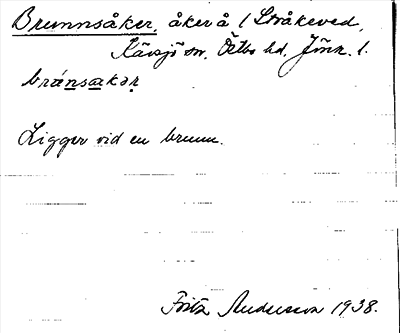 Brunnsåker, åker å 1 Stråkeved,
Kävsjö sn, Östbo hd, Jönk. l.
bránsakər
Ligger vid en brunn.
Fritz Andersson 1938.